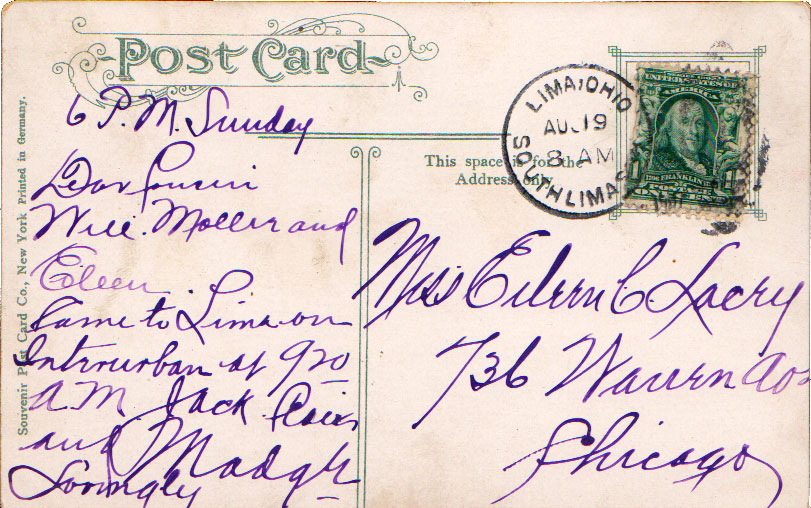 Post Card
6 P.M. Sunday
Dear Cousin
Will. Moller and
Eileen.
Came to Lima on
Interurban at 920
A.M Jack Clair
and Madge
Lovingly
Souvenir Post Card Co., New York Printed in Germany.
This space is for the
Address only.
LIMA, OHIO
AUG 19
8 AM
SOUTH LIMA
Miss Eileen C Lacey
736 Warren Av
Chicago